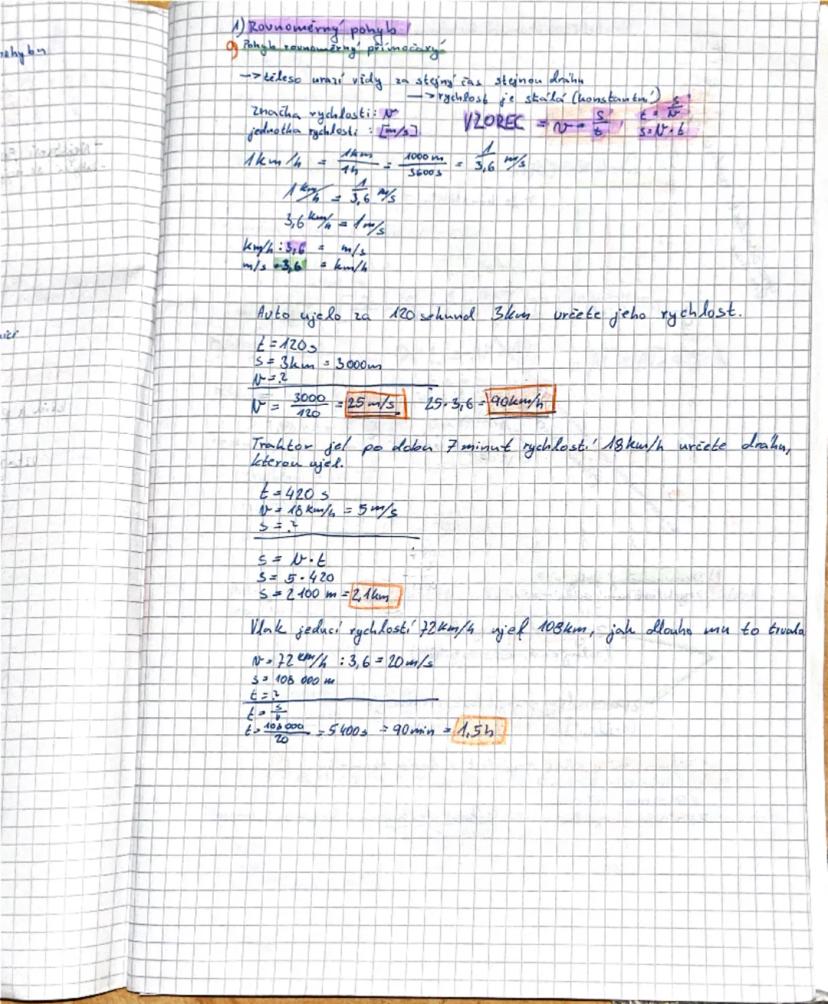 1) Rovnoměrný pohyb
a) Pohyb rovnoměrný přímočarý
→ těleso urazí vždy za stejný čas stejnou dráhu
→ rychlost je stálá (konstantní)
značka rychlosti: v
jednotka rychlosti: [m/s]
VZOREC = v = s/t, t = s/v
s = v · t
1km/h = 1km/1h = 1000m/3600s = 1/3,6 m/s
1 km/h = 1/3,6 m/s
3,6 km/h = 1 m/s
km/h : 3,6 = m/s
m/s · 3,6 = km/h
Auto ujelo za 120 sekund 3km určete jeho rychlost.
t = 120s
s = 3km = 3000m
v = ?
v = 3000/120 = 25 m/s 25 · 3,6 = 90km/h
Traktor jel po dobu 7 minut rychlostí 18km/h určete dráhu,
kterou ujel.
t = 420 s
v = 18 km/h = 5 m/s
s = ?
s = v · t
s = 5 · 420
s = 2100 m = 2,1km
Vlak jedoucí rychlostí 72km/h ujel 108km, jak dlouho mu to trvalo
v = 72 km/h : 3,6 = 20 m/s
s = 108 000 m
t = ?
t = s/v
t = 108 000/20 = 5400s = 90min = 1,5h